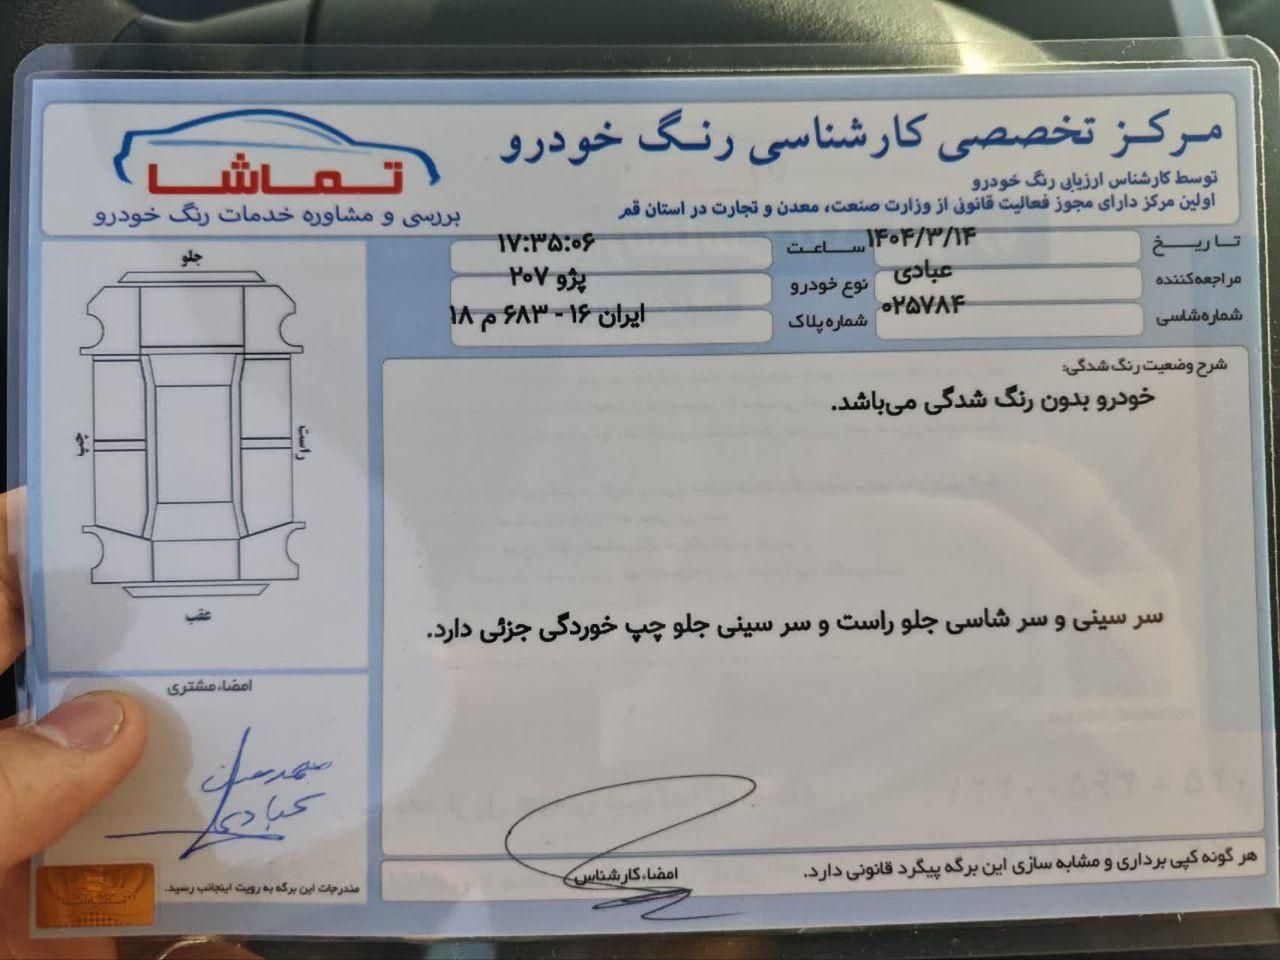 مرکز تخصصی کارشناسی رنگ خودرو
توسط کارشناس ارزیابی رنگ خودرو
اولین مرکز دارای مجوز فعالیت قانونی از وزارت صنعت، معدن و تجارت در استان قم
تماشا
بررسی و مشاوره خدمات رنگ خودرو
تاریخ ۱۴۰۴/۳/۱۴ ساعت ۱۷:۳۵:۰۶
مراجعه‌کننده عبادی نوع خودرو پژو ۲۰۷
شماره‌شاسی ۰۲۵۷۸۴ شماره پلاک ایران ۱۶ - ۶۸۳ م ۱۸
شرح وضعیت رنگ شدگی:
خودرو بدون رنگ شدگی می‌باشد.
سر سینی و سر شاسی جلو راست و سر سینی جلو چپ خوردگی جزئی دارد.
امضاء کارشناس
هر گونه کپی برداری و مشابه سازی این برگه پیگرد قانونی دارد.
جلو
راست
چپ
عقب
امضاء مشتری
عبادی
مندرجات این برگه به رویت اینجانب رسید.